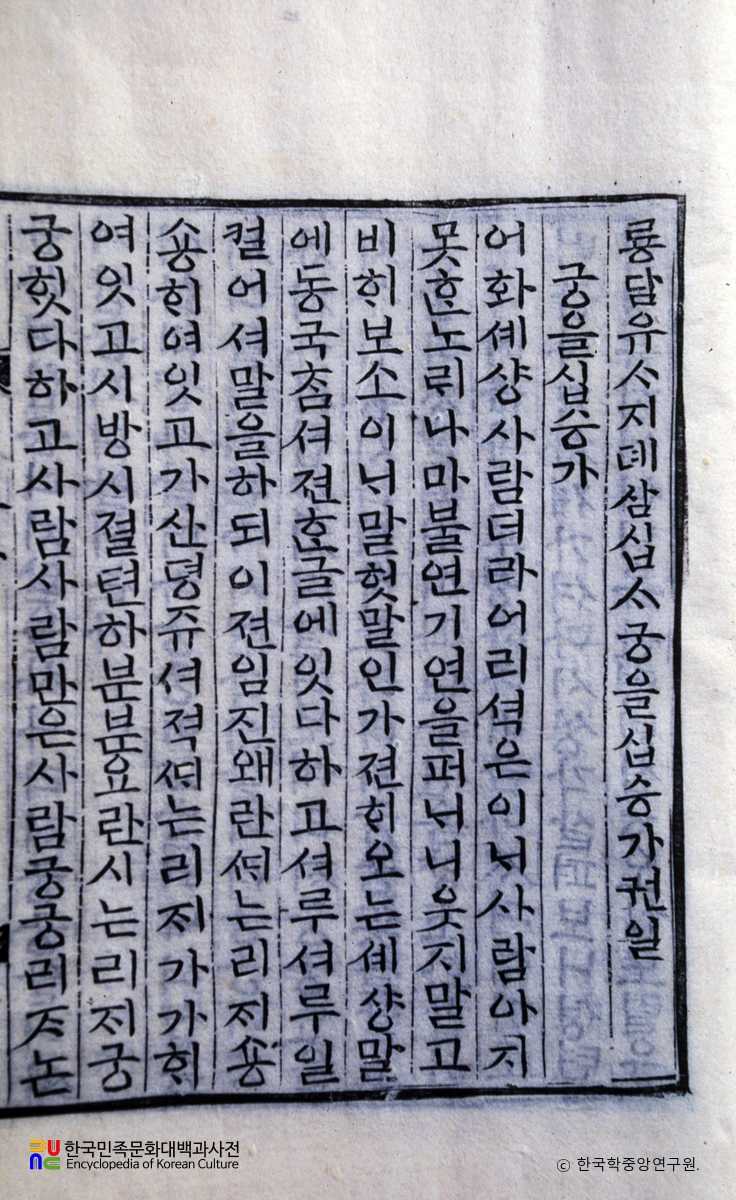 룡담유ᄉᆞ지뎨삼십ᄉᆞ궁을십승가권일
궁을십승가
어화셰샹사람더라어리셕은이ᄂᆡ사람아지
못ᄒᆞᆫ노ᄅᆡ나마불연기연을퍼ᄂᆡ니웃지말고
비ᄒᆡ보소이ᄂᆡ말헛말인가젼ᄒᆡ오는셰샹말
에동국참셔젼ᄒᆞᆫ글에잇다하고셔루셔루일
컬어셔말을하되이젼임진왜란ᄯᆡ는리ᄌᆡ숑
숑ᄒᆡ여잇고가산뎡쥬셔적ᄯᆡ는리ᄌᆡ가가ᄒᆡ
여잇고시방시졀텬하분분요란시는리ᄌᆡ궁
궁ᄒᆡᆺ다하고사람사람만은사람궁궁리ᄌᆞ논
한국민족문화대백과사전
Encyclopedia of Korean Culture
ⓒ 한국학중앙연구원.